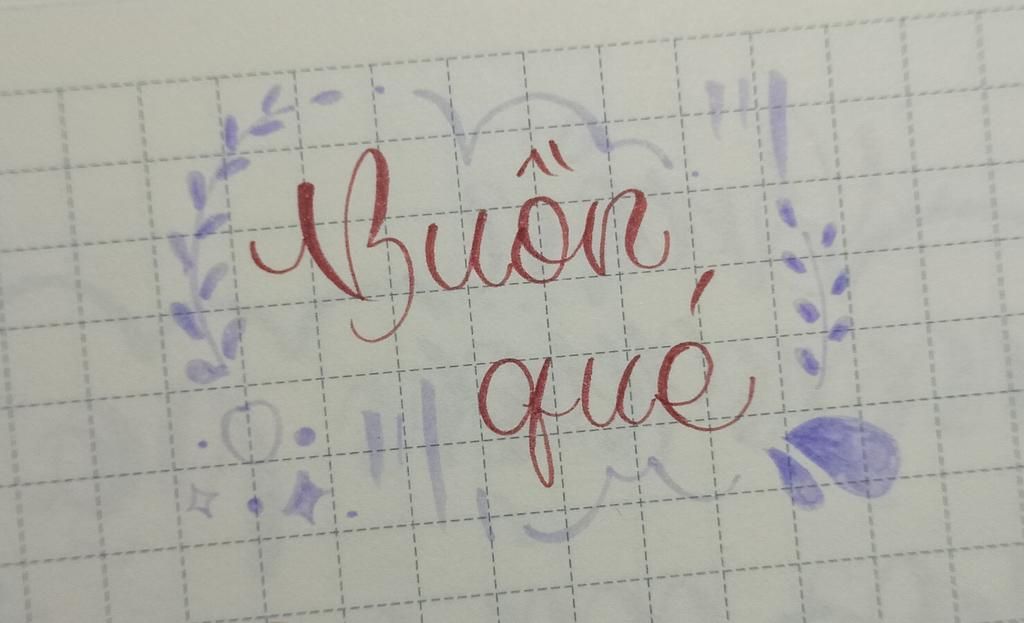 Buồn
qué